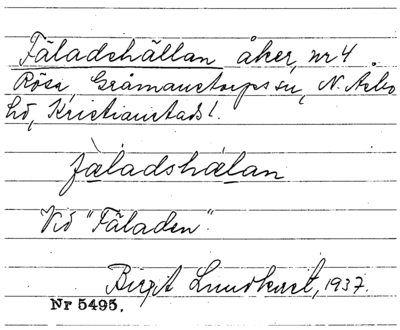 Fäladshällan åker, nr 4
Röse, Gråmanstorps sn, N. Åsbo
hd, Kristianstads l.
fæladshælan
Vid "Fäladen".
Birgit Lundkvist, 1937.
Nr 5495.